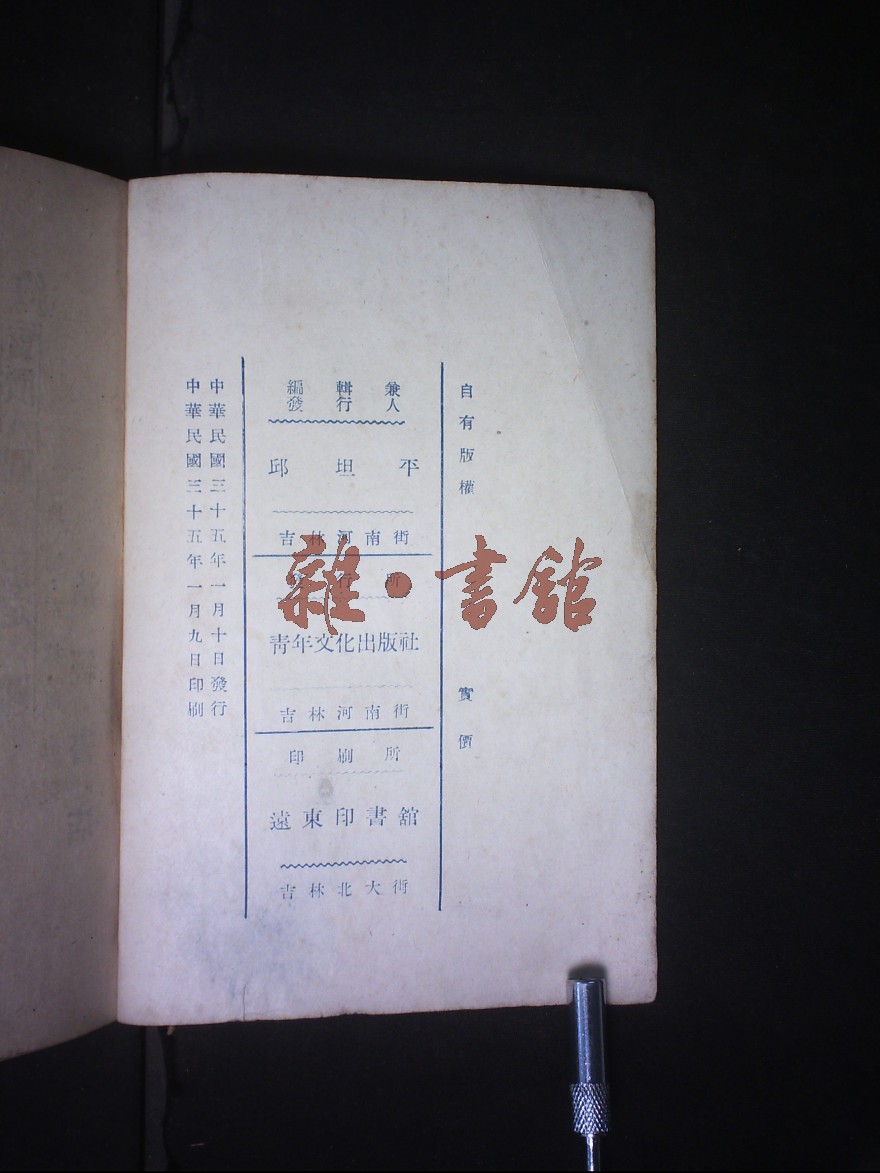 自有版權
實價
編輯兼
發行人
邱坦平
吉林河南街
發行所
青年文化出版社
吉林河南街
印刷所
遠東印書舘
吉林北大街
中華民國三十五年一月十日發行
中華民國三十五年一月九日印刷
雜·書舘